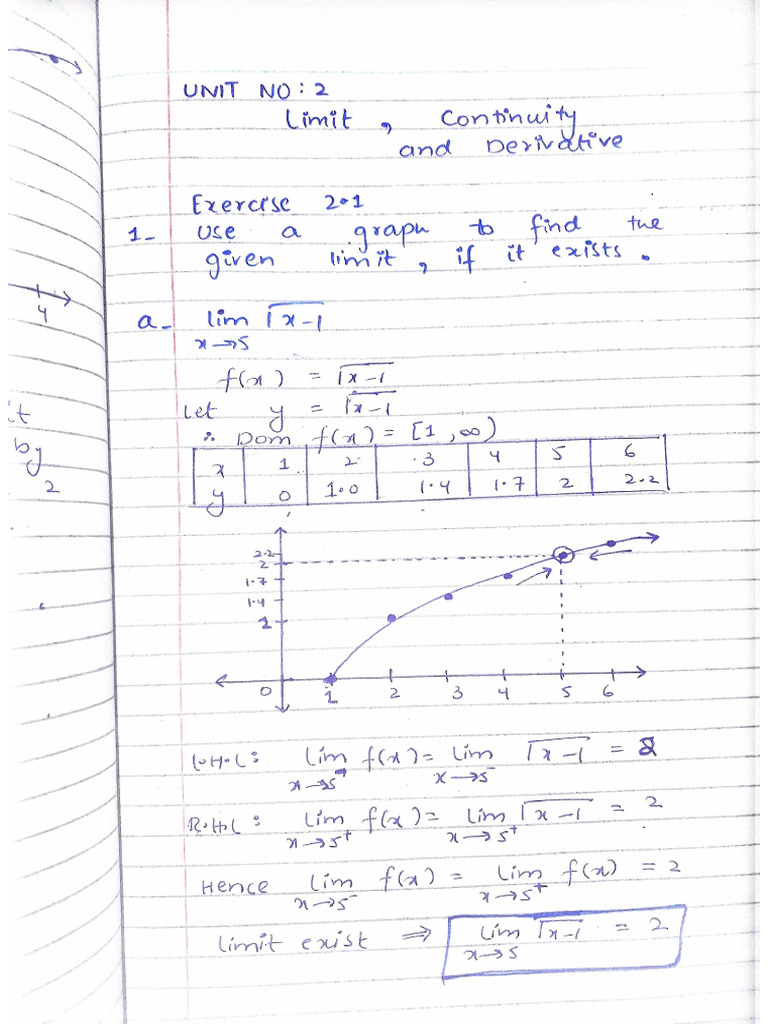 UNIT NO: 2
Limit, Continuity
and Derivative
Exercise 2.1
1- Use a graph to find the
given limit, if it exists.
a- lim √x-1
x→5
f(x) = √x-1
Let y = √x-1
∴ Dom f(x) = [1, ∞)
x 1 2 3 4 5 6
y 0 1.0 1.4 1.7 2 2.2
2.2
2
1.7
1.4
1
0 1 2 3 4 5 6
L.H.L: lim f(x) = lim √x-1 = 2
x→5⁻ x→5⁻
R.H.L: lim f(x) = lim √x-1 = 2
x→5⁺ x→5⁺
Hence lim f(x) = lim f(x) = 2
x→5⁻ x→5⁺
limit exist ⇒ lim √x-1 = 2
x→5
4
it
by
2